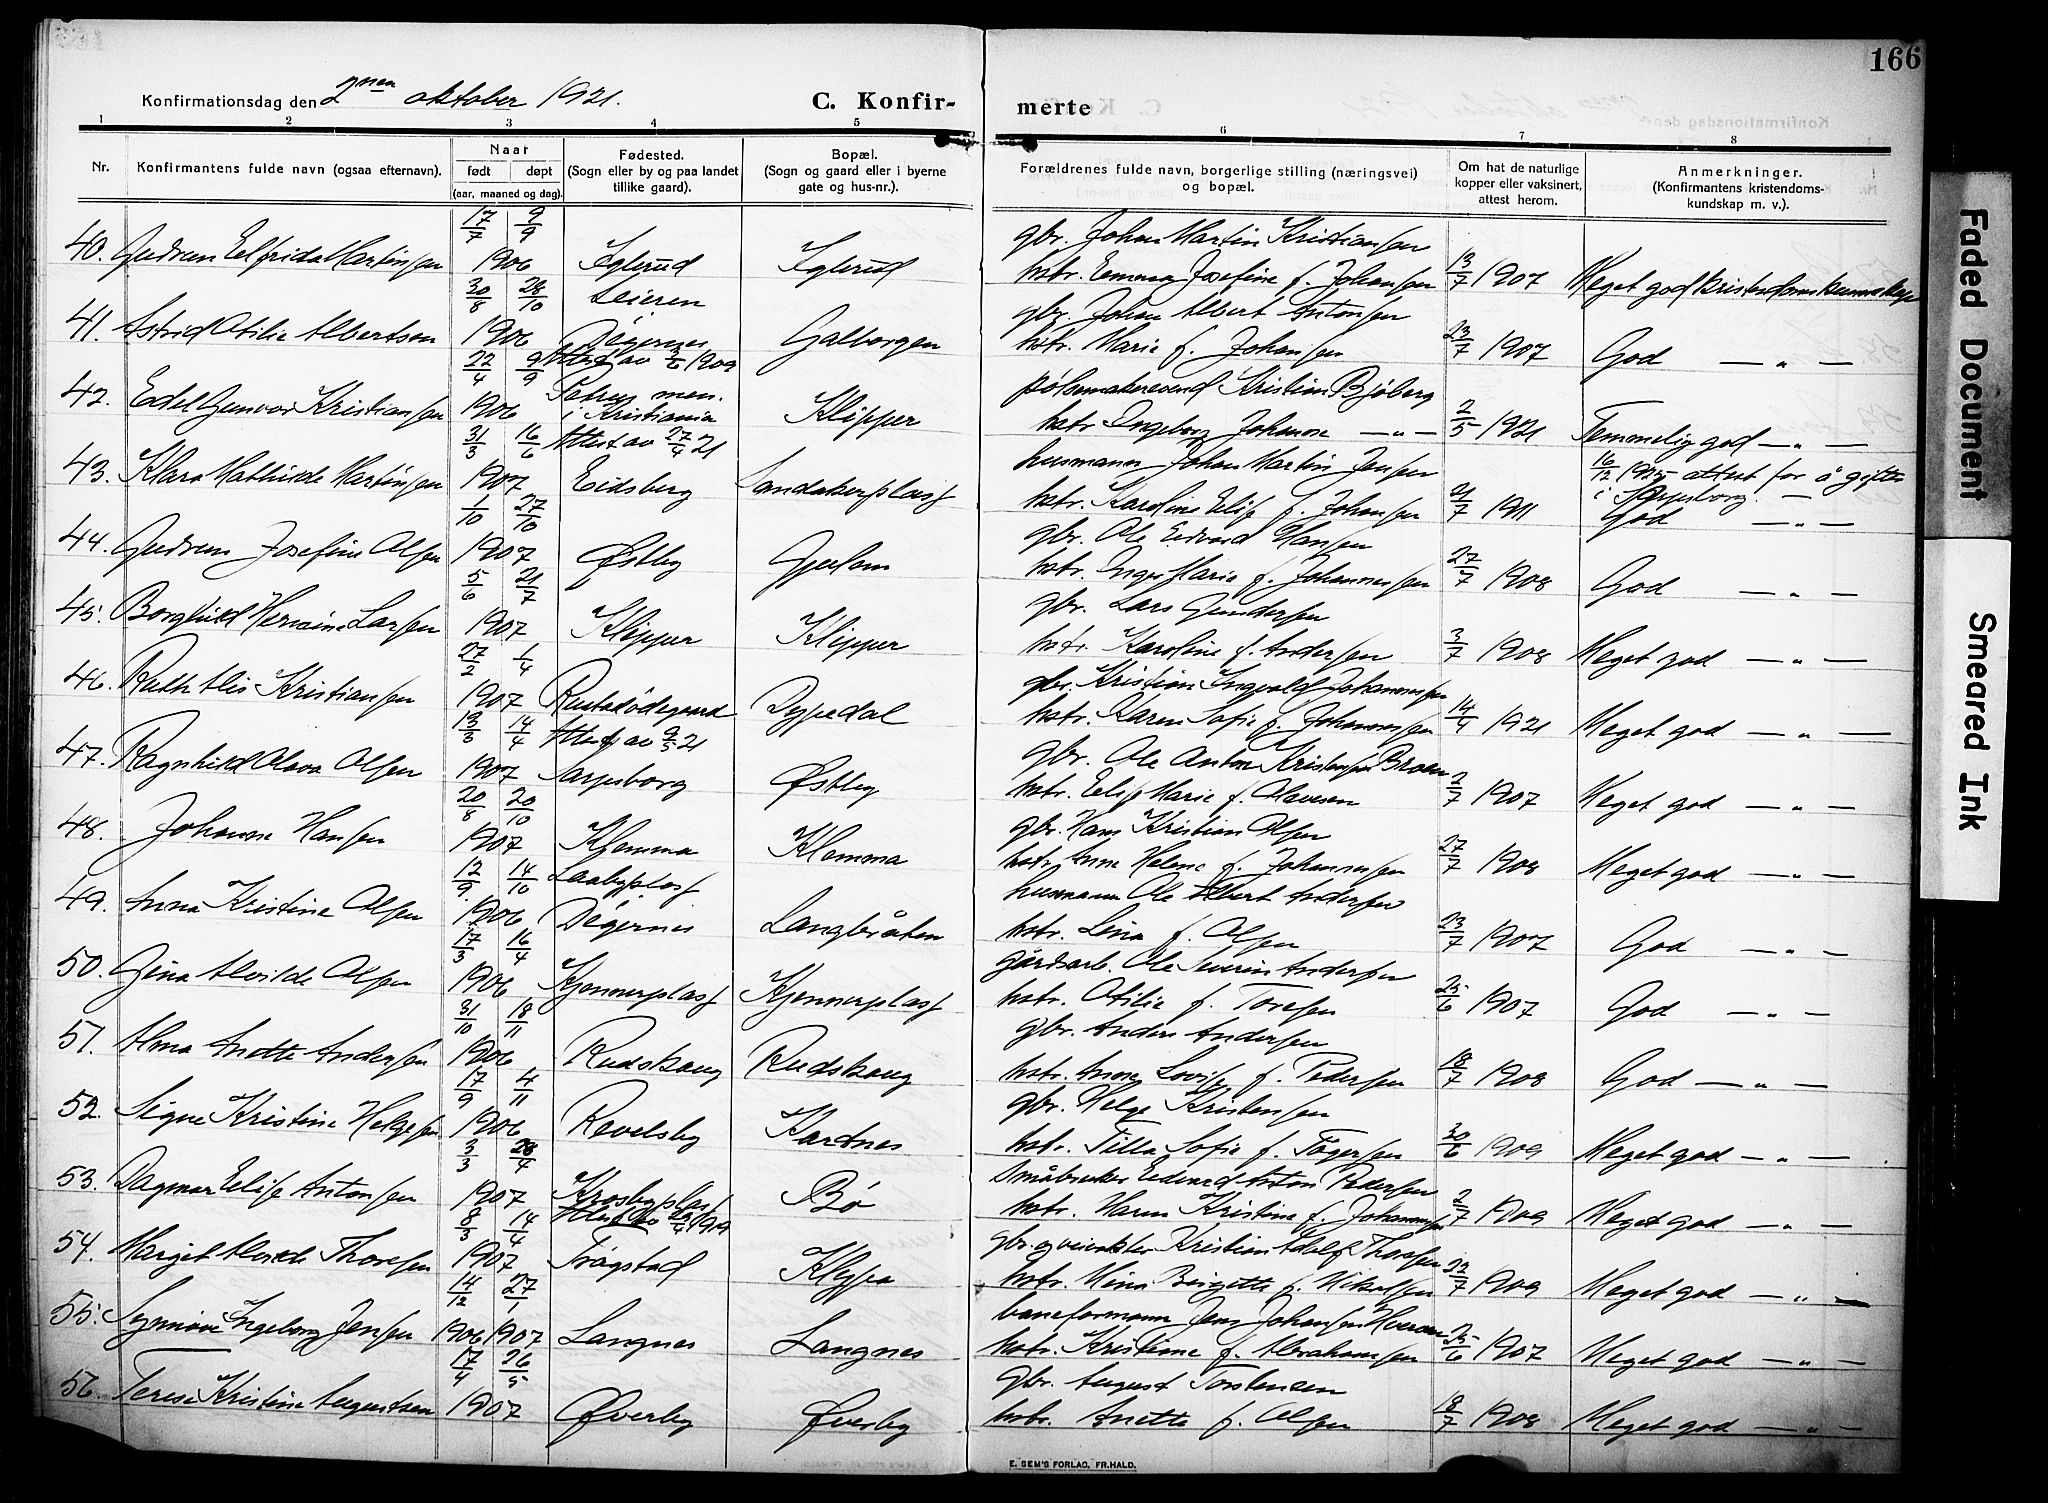 166
Konfirmationsdag den 2nen oktober 1921.
C. Konfir- merte
1 2 3 4 5 6 7 8
Nr.
Konfirmantens fulde navn (ogsaa efternavn).
Naar
født døpt
(aar, maaned og dag).
Fødested.
(Sogn eller by og paa landet
tillike gaard).
Bopæl.
(Sogn og gaard eller i byerne
gate og hus-nr.).
Forældrenes fulde navn, borgerlige stilling (næringsvei)
og bopæl.
Om hat de naturlige
kopper eller vaksinert,
attest herom.
Anmerkninger.
(Konfirmantens kristendoms-
kundskap m. v.).
17/7 9/9 gbr. Johan Martin Kristiansen
40. Gudrun Elfrida Martinsen 1906 Iglerud Iglerud hstr. Emma Josefine f. Johansen 13/7 1907 Meget god kristendomskunnskap
30/8 28/10 Leieren gbr. Johan Albert Antonsen
41. Astrid Otilie Albertsen 1906 Degernes Galborgen hstr. Marie f. Johansen 23/7 1907 God — „ —
22/4 9/9 Attest av 1909 Kristian Bjøberg
42. Edel Gunvor Kristiansen 1906 Petrus men. i Kristiania Klipper hstr. Ingeborg Johanne — „ — 2/5 1921 Temmelig god — „ —
31/3 16/6 Attest av 27/4 21 husmann Johan Martin Jensen 16/12 1925 attest for å gifte
43. Klara Mathilde Martinsen 1907 Eidsberg Landakerplass hstr. Karoline Elise f. Johansen 21/7 1911 i Sarpsborg. God — „ —
1/10 27/10 gbr. Ole Edvard Hansen
44. Gudrun Josefine Olsen 1907 Østby Gjelom hstr. Inger Marie f. Johannessen 27/7 1908 God — „ —
5/6 21/7 gbr. Lars Gundersen
45. Borghild Hermine Larsen 1907 Klipper Klipper hstr. Karoline f. Andersen 3/7 1908 Meget god — „ —
27/2 1/4 gbr. Kristian Ingvald Johannessen
46. Ruth Alis Kristiansen 1907 Rustadødegaard Dypedal hstr. Karen Sofie f. Johannessen 14/4 1921 Meget god — „ —
13/3 14/4 Attest av 9/5 21 gbr. Ole Anton Kristensen Braen
47. Ragnhild Olava Olsen 1907 Sarpsborg Østby hstr. Elise Marie f. Olavesen 2/7 1907 Meget god — „ —
20/8 20/10 gbr. Hans Kristian Olsen
48. Johanne Hansen 1907 Klemma Klemma hstr. Anne Helene f. Johannessen 27/7 1908 Meget god — „ —
12/9 14/10 husmann Ole Albert Andersen
49. Anna Kristine Olsen 1906 Degernes Langbråten hstr. Lina f. Olsen 23/7 1907 God — „ —
17/3 16/4 gårdsarb. Ole Severin Andersen
50. Gina Alvilde Olsen 1906 Kjennerplass Kjennerplass hstr. Otilie f. Toresen 25/6 1907 God — „ —
31/10 18/11 gbr. Anders Andersen
51. Alma Anette Andersen 1906 Rudskaug Rudskaug hstr. Anna Lovise f. Pedersen 18/7 1908 God — „ —
17/9 4/11 gbr. Helge Kristensen
52. Signe Kristine Helgesen 1906 Revelsby Kartnes hstr. Tilla Sofie f. Tøgersen 30/6 1909 Meget god — „ —
3/3 28/4 Småbruker Edvard Anton Pedersen
53. Dagmar Elise Antonsen 1907 Krosbyplass Bø hstr. Maren Kristine f. Johannessen 2/7 1909 Meget god — „ —
8/3 14/4 gbr. og veivokter Kristian Adolf Thoresen
54. Margit Alvilde Thoresen 1907 Trøgstad Kleppa hstr. Mina Birgitte f. Nikolaisen 22/7 1909 Meget god — „ —
14/12 27/1 baneformann Jens Johansen Hveran
55. Synnøve Ingeborg Jensen 1906 1907 Langnes Langnes hstr. Kristine f. Abrahamsen 25/6 1907 Meget god — „ —
17/4 26/5 gbr. August Torstensen
56. Terese Kristine Augustsen 1907 Øverby Øverby hstr. Anette f. Olsen 18/7 1908 Meget god — „ —
E. SEM'S FORLAG, FR.HALD.
Faded Document
Smeared Ink